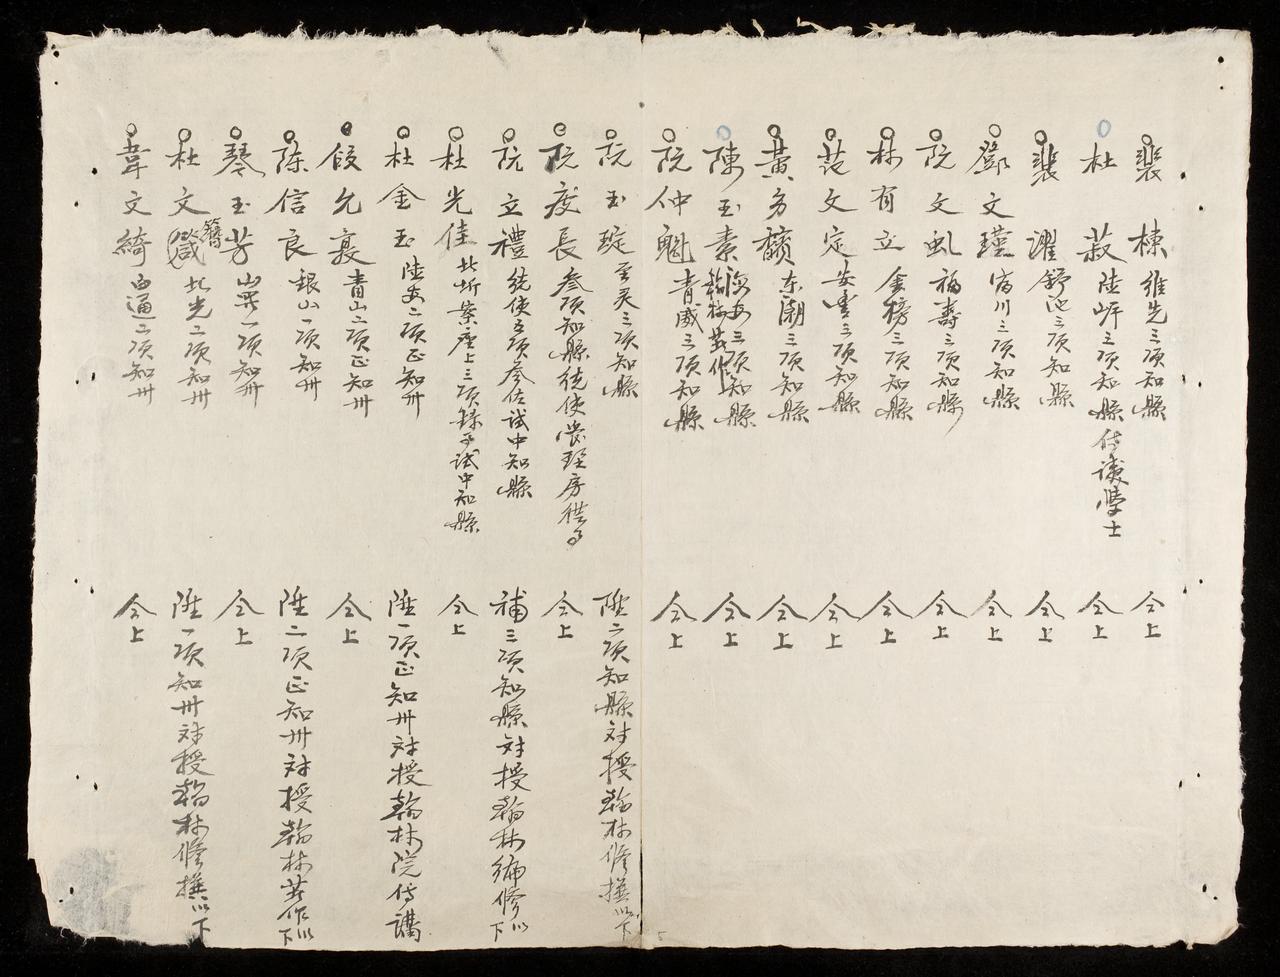 裴棟 維先三項知縣 仝上
杜菽 陸岸三項知縣侍讀學士 仝上
裴濯 舒池三項知縣 仝上
鄧文瑾 川三項知縣 仝上
阮文虬 福壽三項知縣 仝上
林有立 金榜三項知縣 仝上
范文定 安豊三項知縣 仝上
黃方 東潮三項知縣 仝上
陳玉素 海安三項知縣 翰林著作 仝上
阮仲魁 青威三項知縣 仝上
阮玉琁 至灵三項知縣 陞二項知縣对授翰林修撰以下
阮度長 叁項知縣統使 房 仝上
阮立禮 統使五項叅佐試中知縣 補三項知縣对授翰林編修以下
杜光佳 北圻案座上三項錄事試中知縣 仝上
杜金玉 陸安二項正知州 陞一項正知州对授翰林院侍講
段允 青山二項正知州 仝上
陳信良 銀山一項知州 陞二項正知州对授翰林著作以下
琴玉芳 山罗一項知州 仝上
杜文簪 北光二項知州 陞一項知州对授翰林修撰以下
韋文綺 通二項知州 仝上